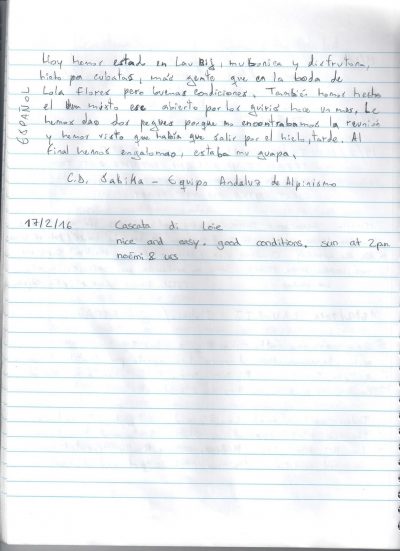 ESPAÑOL
Hoy hemos estad en Lau Bij, mu bonica y disfrutona,
hielo pa cubatas, más gente que en la boda de
Lola Flores pero buenas condiciones. También hemos hecho
el mixto ese abierto por los guiris hace un mes. Le
hemos dao dos pegues porque no encontrabamos la reunión
y hemos visto que había que salir por el hielo, tarde. Al
final hemos engalomao, estaba mu guapa.
C.D. Sabika - Equipo Andaluz de Alpinismo
17/2/16 Cascata di Loie
nice and easy. good conditions, sun at 2pm
noëmi & urs